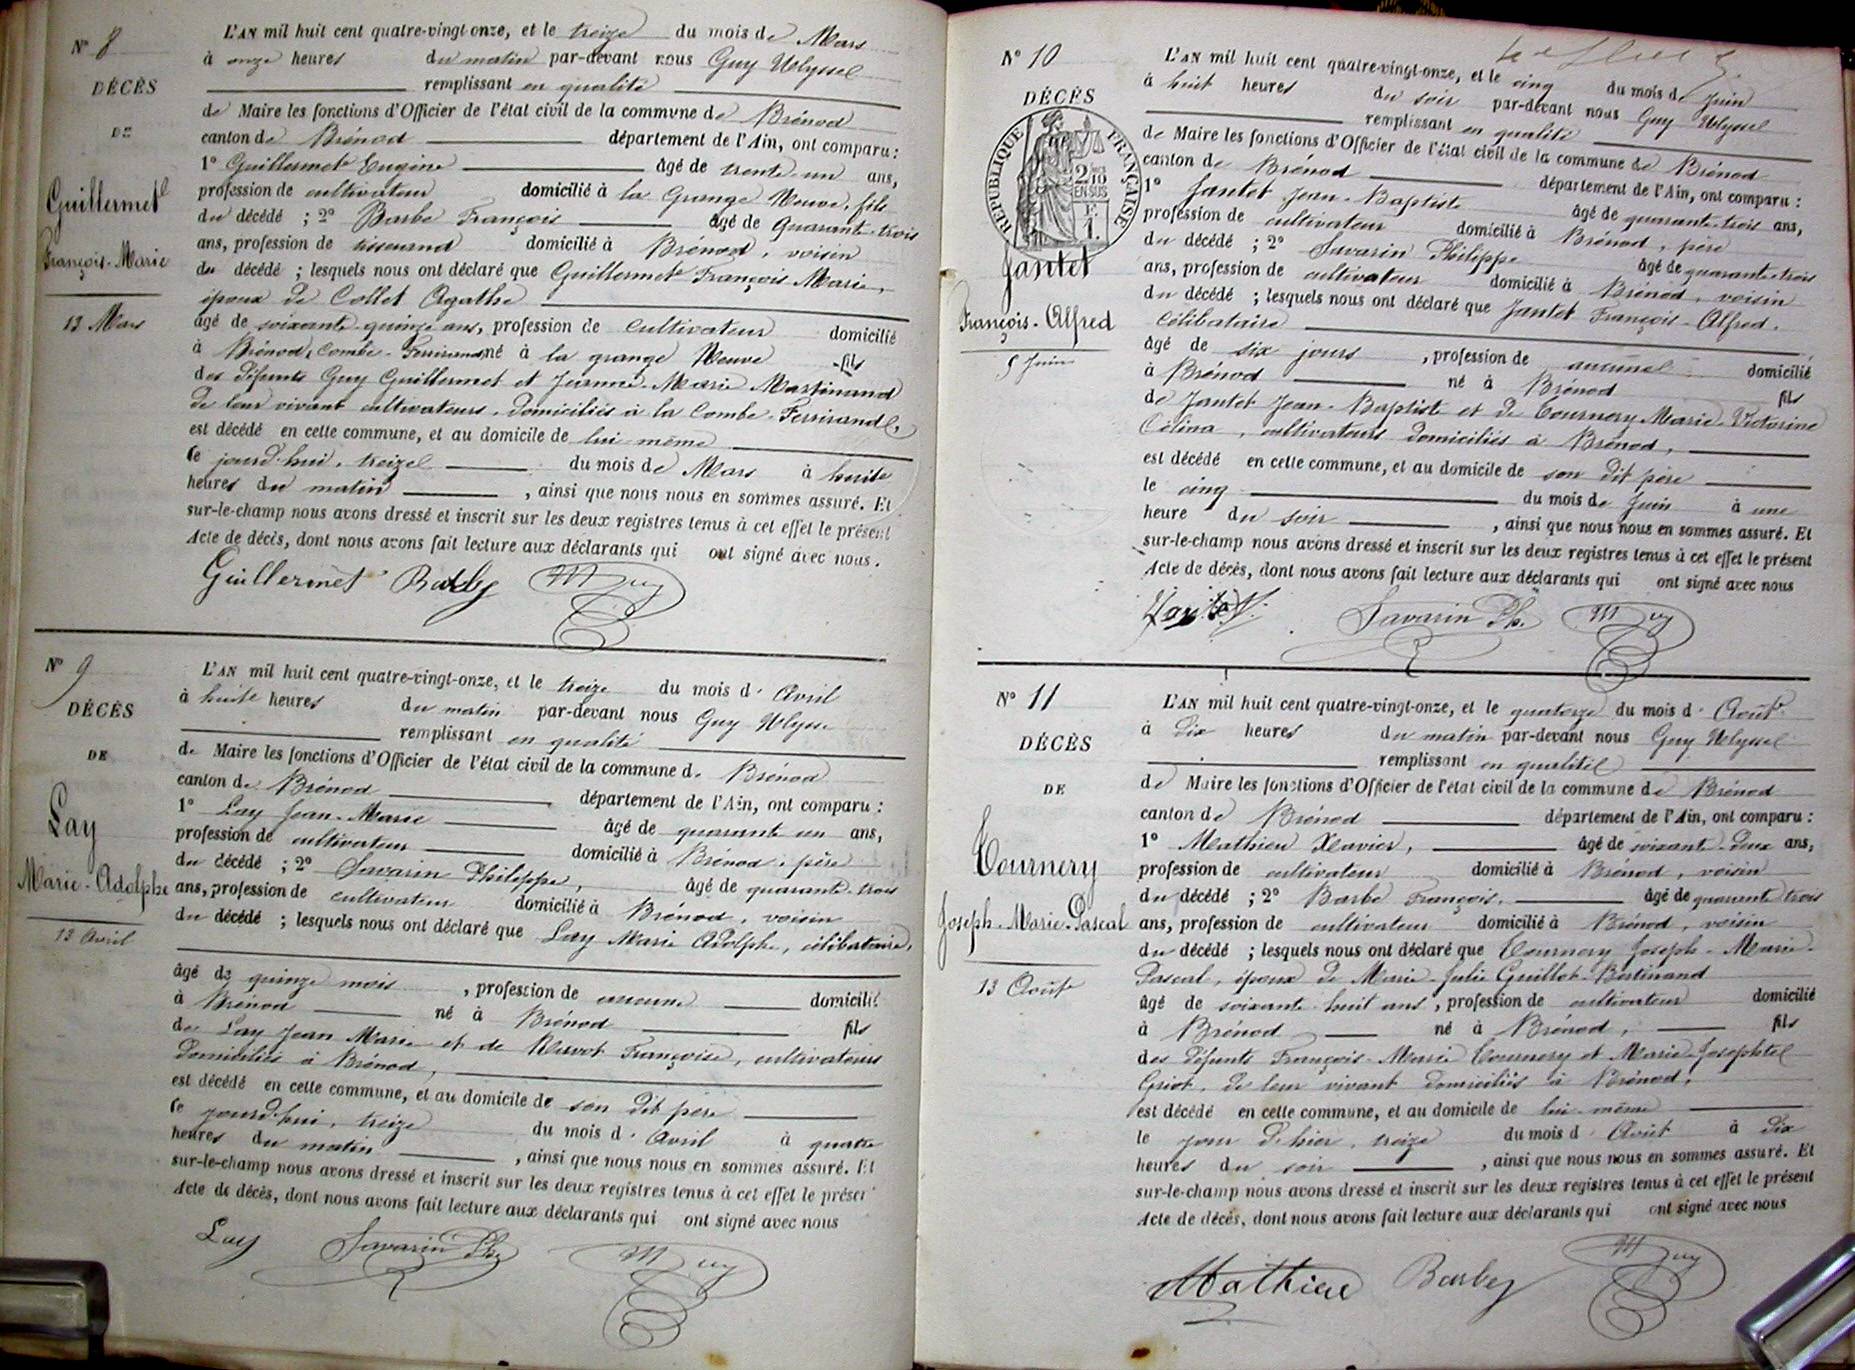 N° 8
DÉCÈS
DE
Guillermet
François-Marie
13 Mars
L'AN mil huit cent quatre-vingt-onze, et le treize du mois de Mars
à onze heures du matin par-devant nous Guy Ulysse
remplissant en qualité
de Maire les fonctions d'Officier de l'état civil de la commune de Brénod
canton de Brénod département de l'Ain, ont comparu :
1° Guillermet Eugène âgé de trente-un ans,
profession de cultivateur domicilié à la Grange Neuve, fils
du décédé ; 2° Barbe François âgé de Quarante-trois
ans, profession de tisserand domicilié à Brénod, voisin
du décédé ; lesquels nous ont déclaré que Guillermet François-Marie,
époux de Collet Agathe
âgé de soixante-quinze ans, profession de cultivateur domicilié
à Brénod, Combe-Ferrirand né à la grange Neuve fils
des défunts Guy Guillermet et Jeanne-Marie Martinand
de leur vivant cultivateurs, domiciliés à la Combe-Ferrirand,
est décédé en cette commune, et au domicile de lui-même
ce jourd'hui, treize du mois de Mars à huit
heures du matin , ainsi que nous nous en sommes assuré. Et
sur-le-champ nous avons dressé et inscrit sur les deux registres tenus à cet effet le présent
Acte de décès, dont nous avons fait lecture aux déclarants qui ont signé avec nous.
Guillermet Barbe Guy
N° 9
DÉCÈS
DE
Lay
Marie-Adolphe
13 Avril
L'AN mil huit cent quatre-vingt-onze, et le treize du mois d' Avril
à huit heures du matin par-devant nous Guy Ulysse
remplissant en qualité
de Maire les fonctions d'Officier de l'état civil de la commune de Brénod
canton de Brénod département de l'Ain, ont comparu :
1° Lay Jean-Marie âgé de quarante un ans,
profession de cultivateur domicilié à Brénod, père
du décédé ; 2° Savarin Philippe, âgé de quarante-trois
ans, profession de cultivateur domicilié à Brénod, voisin
du décédé ; lesquels nous ont déclaré que Lay Marie Adolphe, célibataire,
âgé de quinze mois , profession de aucune domicilié
à Brénod né à Brénod fils
de Lay Jean Marie et de Françoise, cultivateurs
domiciliés à Brénod,
est décédé en cette commune, et au domicile de son dit père
ce jourd'hui, treize du mois d' Avril à quatre
heures du matin , ainsi que nous nous en sommes assuré. Et
sur-le-champ nous avons dressé et inscrit sur les deux registres tenus à cet effet le présent
Acte de décès, dont nous avons fait lecture aux déclarants qui ont signé avec nous
Lay Savarin Ph. Guy
N° 10
DÉCÈS
RÉPUBLIQUE FRANÇAISE
2/10 EN SUS
F. 1.
Jantet
François-Alfred
5 Juin
L'AN mil huit cent quatre-vingt-onze, et le cinq du mois de Juin
à huit heures du soir par-devant nous Guy Ulysse
remplissant en qualité
de Maire les fonctions d'Officier de l'état civil de la commune de Brénod
canton de Brénod département de l'Ain, ont comparu :
1° Jantet Jean-Baptiste âgé de quarante-trois ans,
profession de cultivateur domicilié à Brénod, père
du décédé ; 2° Savarin Philippe âgé de quarante-trois
ans, profession de cultivateur domicilié à Brénod, voisin
du décédé ; lesquels nous ont déclaré que Jantet François-Alfred,
célibataire
âgé de six jours , profession de aucune domicilié
à Brénod né à Brénod fils
de Jantet Jean-Baptiste et de Tournery Marie-Victorine
Célina, cultivateurs domiciliés à Brénod,
est décédé en cette commune, et au domicile de son dit père
le cinq du mois de Juin à une
heure du soir , ainsi que nous nous en sommes assuré. Et
sur-le-champ nous avons dressé et inscrit sur les deux registres tenus à cet effet le présent
Acte de décès, dont nous avons fait lecture aux déclarants qui ont signé avec nous
Savarin Ph. Guy
N° 11
DÉCÈS
DE
Tournery
Joseph-Marie-Pascal
13 Août
L'AN mil huit cent quatre-vingt-onze, et le quatorze du mois d' Août
à dix heures du matin par-devant nous Guy Ulysse
remplissant en qualité
de Maire les fonctions d'Officier de l'état civil de la commune de Brénod
canton de Brénod département de l'Ain, ont comparu :
1° Mathieu Xavier, âgé de soixante-deux ans,
profession de cultivateur domicilié à Brénod, voisin
du décédé ; 2° Barbe François, âgé de quarante trois
ans, profession de cultivateur domicilié à Brénod, voisin
du décédé ; lesquels nous ont déclaré que Tournery Joseph-Marie-
Pascal, époux de Marie-Julie Guillot-Bertinand
âgé de soixante-huit ans, profession de cultivateur domicilié
à Brénod né à Brénod, fils
des défunts François-Marie Tournery et Marie-Josephte
Griot, de leur vivant domiciliés à Brénod,
est décédé en cette commune, et au domicile de lui-même
le jour d'hier, treize du mois d' Août à dix
heures du soir , ainsi que nous nous en sommes assuré. Et
sur-le-champ nous avons dressé et inscrit sur les deux registres tenus à cet effet le présent
Acte de décès, dont nous avons fait lecture aux déclarants qui ont signé avec nous
Mathieu Barbe Guy